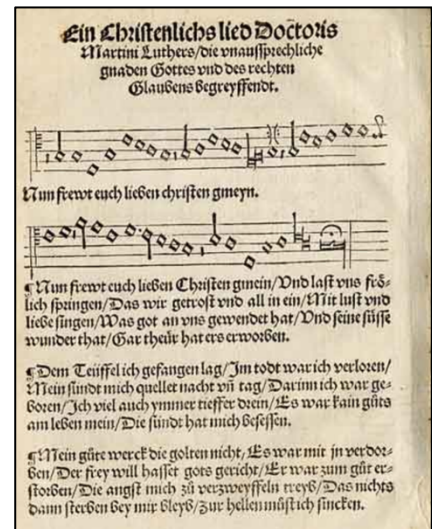 Ein Christenlichs lied Doctoris
Martini Luthers/die vnaussprechliche
gnaden Gottes vnd des rechten
Glaubens begreyffendt.
Nun frewt euch lieben christen gmeyn.
¶Nun frewt euch lieben Christen gmein/Vnd last vns frö-
lich springen/Das wir getrost vnd all in ein/Mit lust vnd
liebe singen/Was got an vns gewendet hat/Vnd seine süsse
wunder that/Gar theür hat ers erworben.
¶Dem Teüffel ich gefangen lag/Im todt war ich verloren/
Mein sündt mich quellet nacht vn̄ tag/Darinn ich war ge-
boren/Ich viel auch ymmer tieffer drein/Es war kain güts
am leben mein/Die sündt hat mich besessen.
¶Mein güte werck die golten nicht/Es war mit jn verdor-
ben/Der frey will hasset gots gericht/Er war zum güt er-
storben/Die angst mich zü verzweyffeln treyb/Das nichts
dann sterben bey mir bleyb/Zur hellen müst ich sincken.